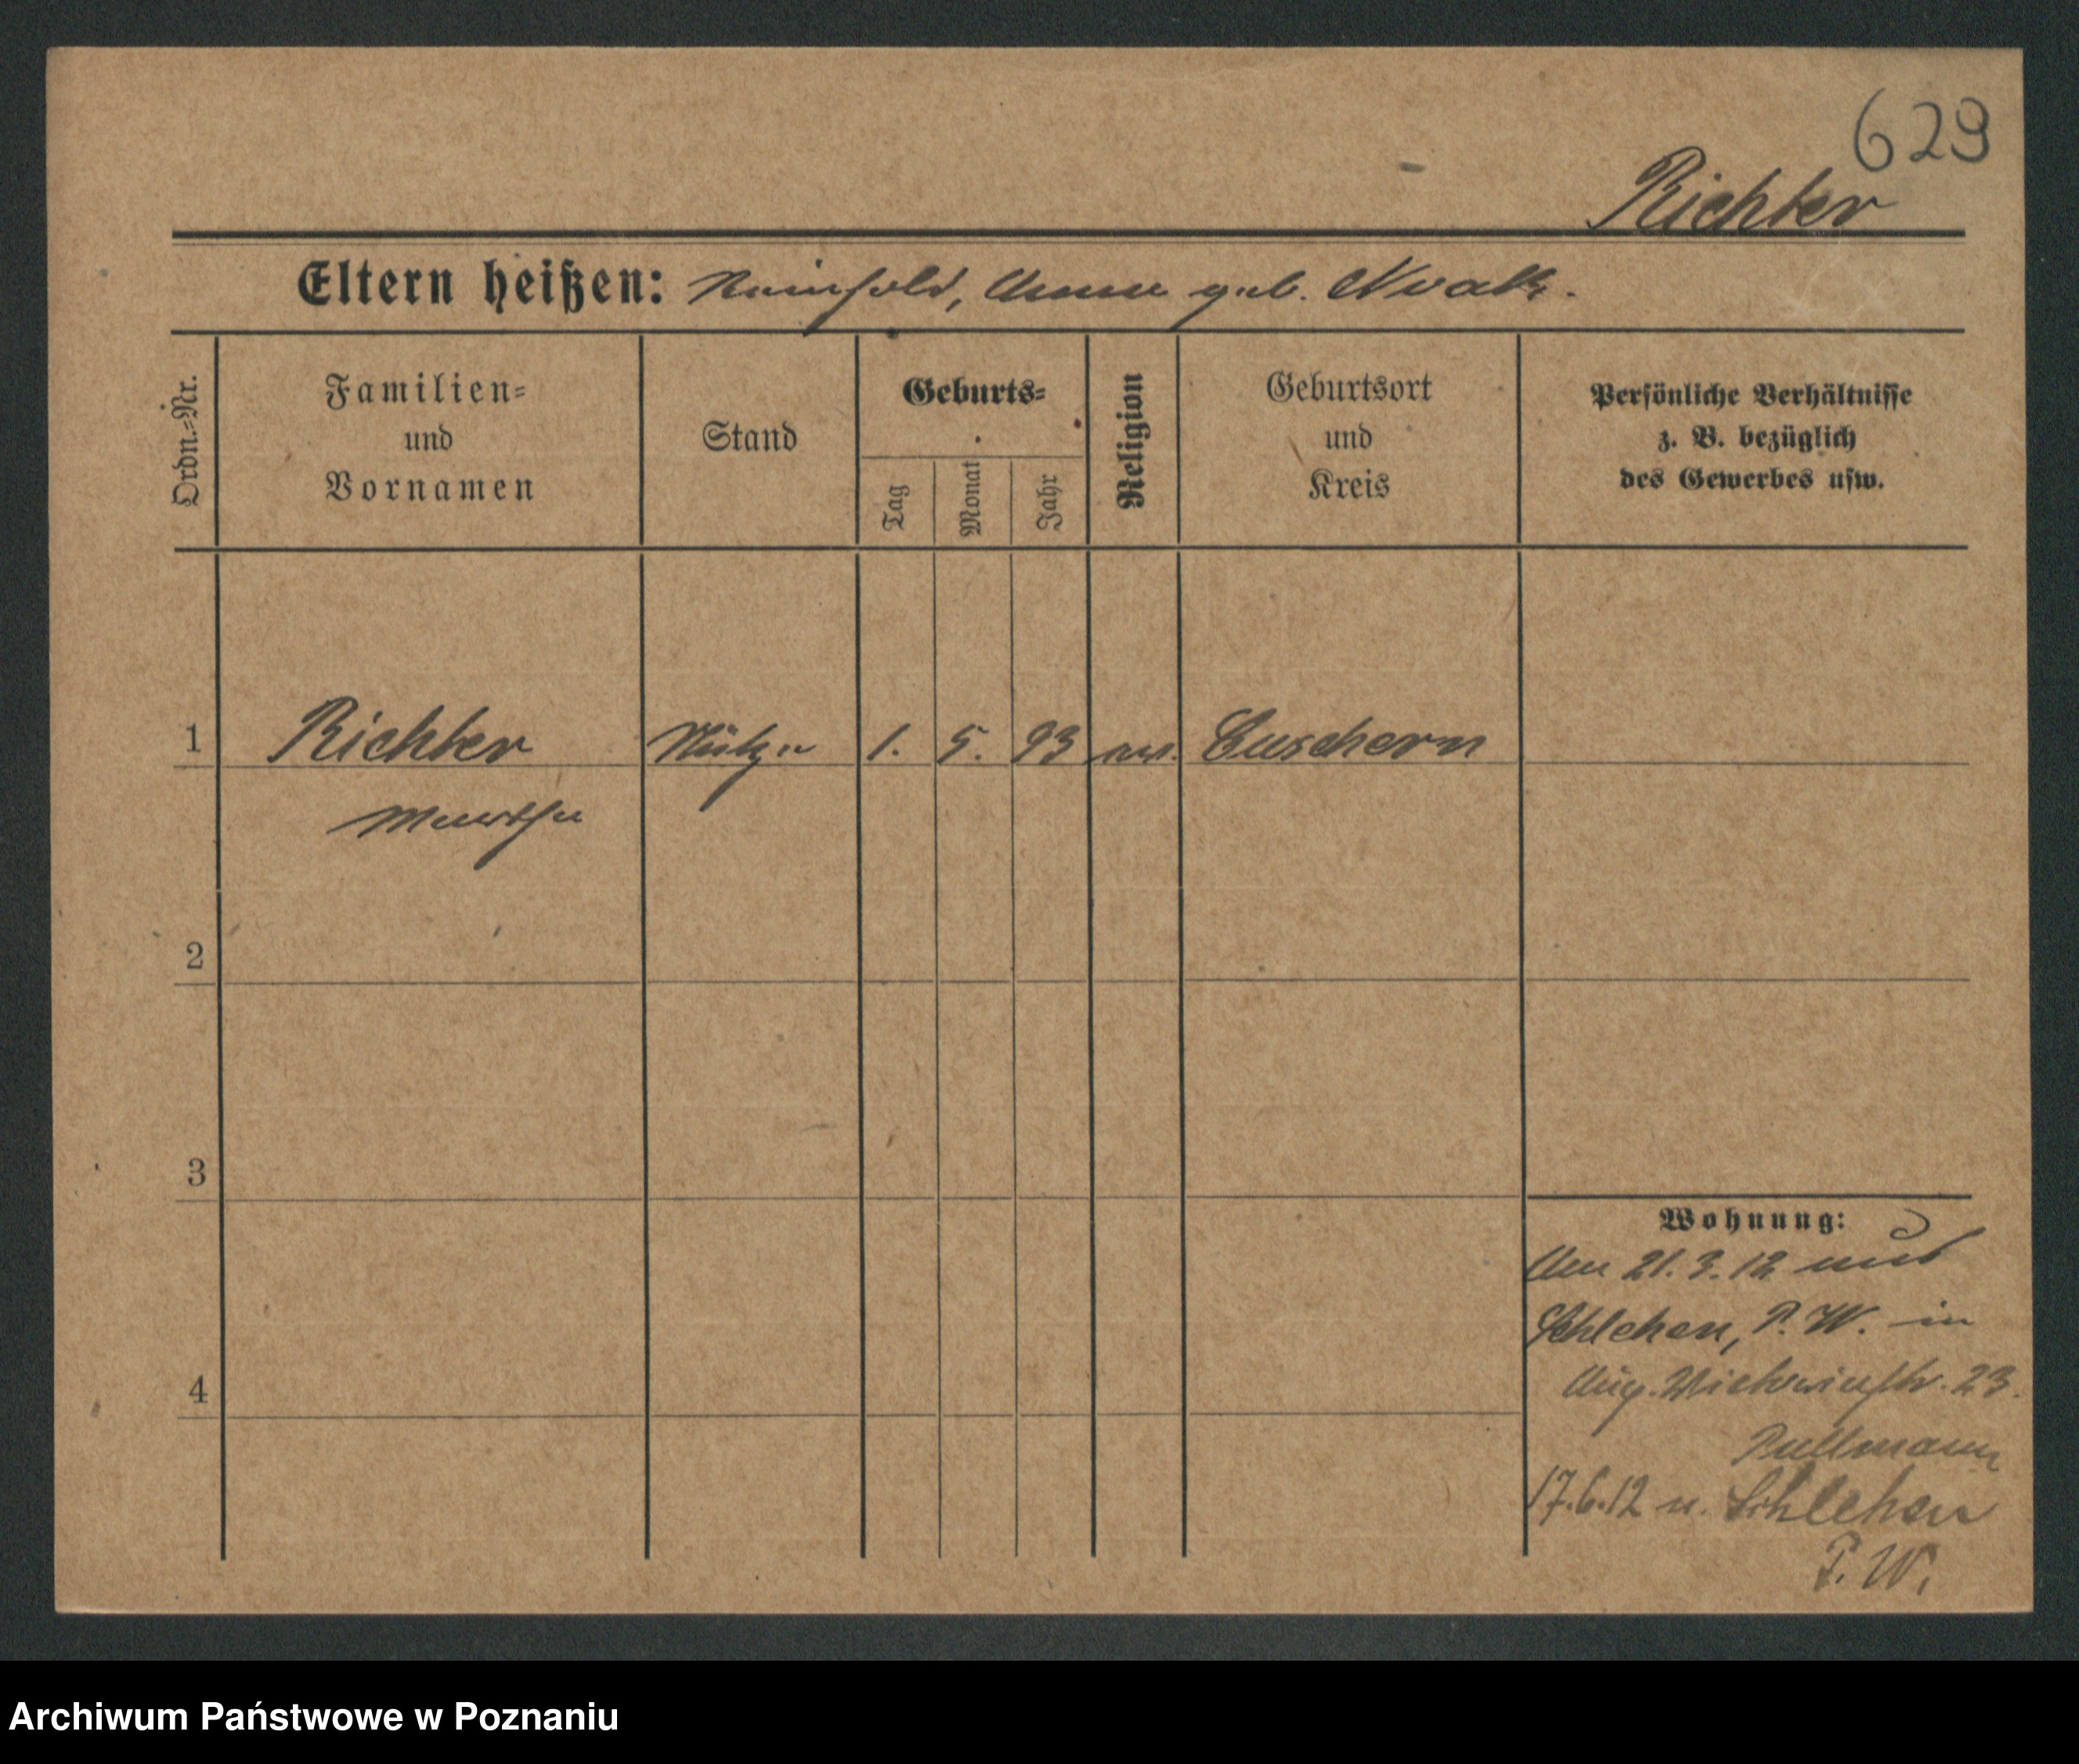 629
Richter
Eltern heißen: Reinhold, Anna geb. Noak.
Ordn.-Nr.
Familien-
und
Vornamen
Stand
Geburts-
Tag
Monat
Jahr
Religion
Geburtsort
und
Kreis
Persönliche Verhältnisse
z. B. bezüglich
des Gewerbes usw.
1 Richter Stütze 1. 5. 93 ev. Cuschern
Martha
2
3
4
Wohnung:
Am 21.3.12 aus
Schlehen, P. W. in
Aug. Viktoriastr. 23.
Pullmann
17.6.12 n. Schlehen
P. W.
Archiwum Państwowe w Poznaniu